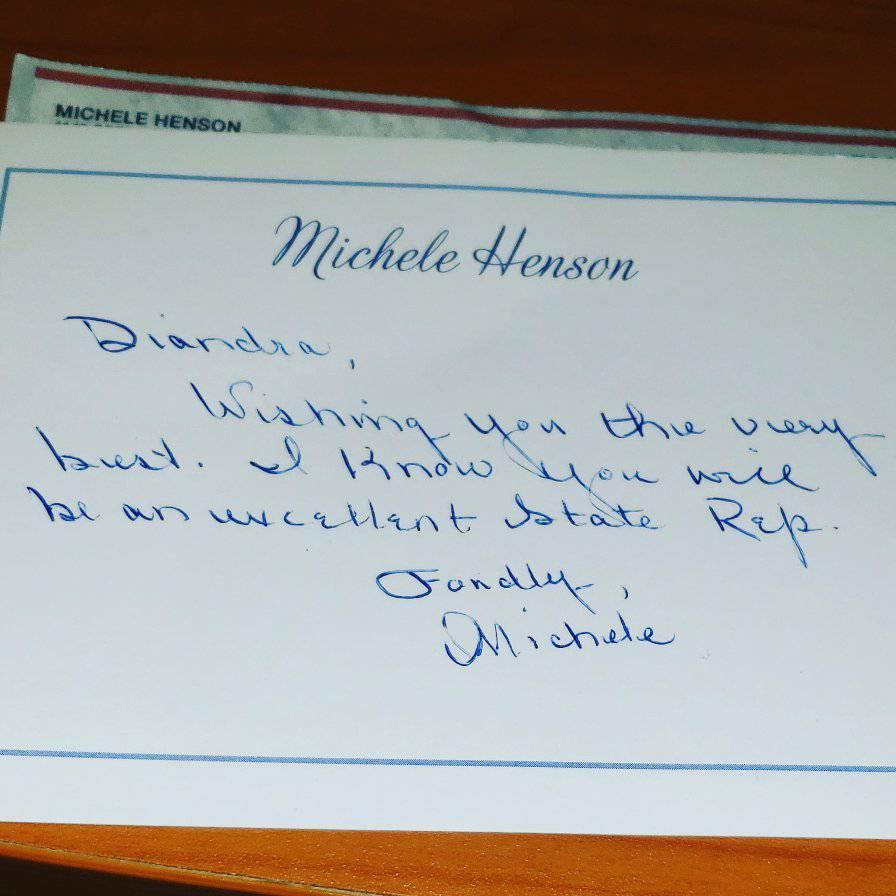 MICHELE HENSON
Michele Henson
Diandra,
Wishing you the very
best. I know you will
be an excellent State Rep.
Fondly,
Michele